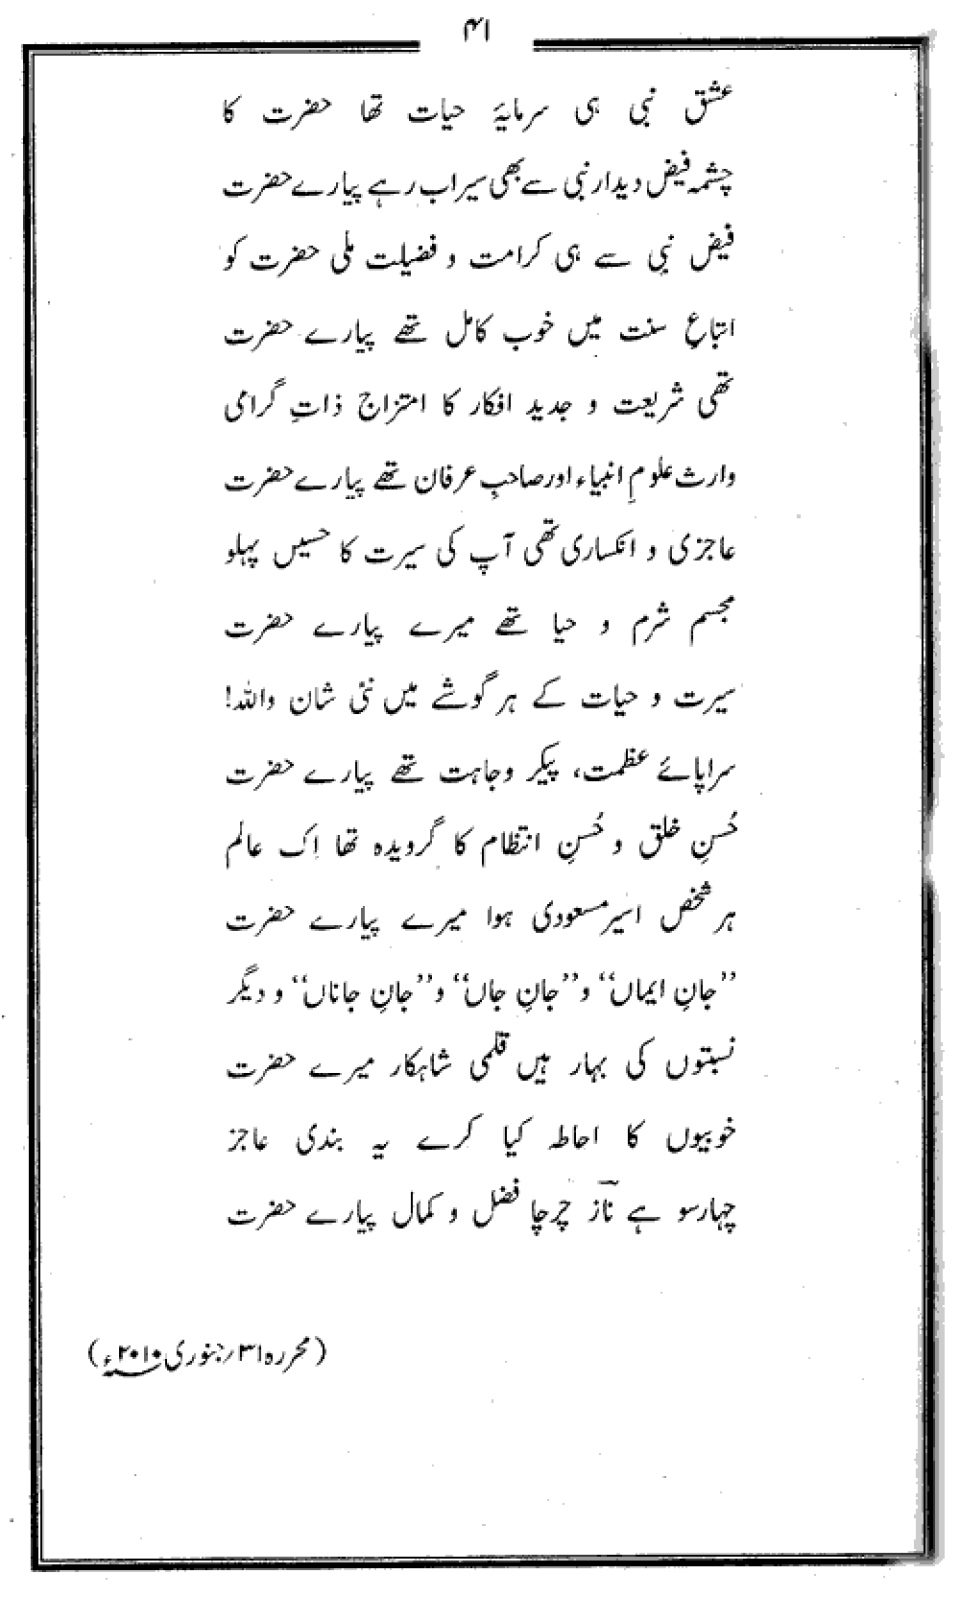 ۴۱
عشق نبی ہی سرمایۂ حیات تھا حضرت کا
چشمہ فیض دیدار نبی سے بھی سیراب رہے پیارے حضرت
فیض نبی سے ہی کرامت و فضیلت ملی حضرت کو
اتباعِ سنت میں خوب کامل تھے پیارے حضرت
تھی شریعت و جدید افکار کا امتزاج ذاتِ گرامی
وارث علومِ انبیاء اور صاحبِ عرفان تھے پیارے حضرت
عاجزی و انکساری تھی آپ کی سیرت کا حسیں پہلو
مجسم شرم و حیا تھے میرے پیارے حضرت
سیرت و حیات کے ہر گوشے میں نئی شان واللہ!
سراپائے عظمت، پیکر وجاہت تھے پیارے حضرت
حُسنِ خلق و حُسنِ انتظام کا گرویدہ تھا اِک عالم
ہر شخص اسیر مسعودی ہوا میرے پیارے حضرت
”جانِ ایماں“ و ”جانِ جاں“ و ”جانِ جاناں“ و دیگر
نسبتوں کی بہار ہیں قلمی شاہکار میرے حضرت
خوبیوں کا احاطہ کیا کرے یہ بندی عاجز
چہار سو ہے نازؔ چرچا فضل و کمال پیارے حضرت
(محررہ ۳۱؍جنوری ۲۰۱۰ء)